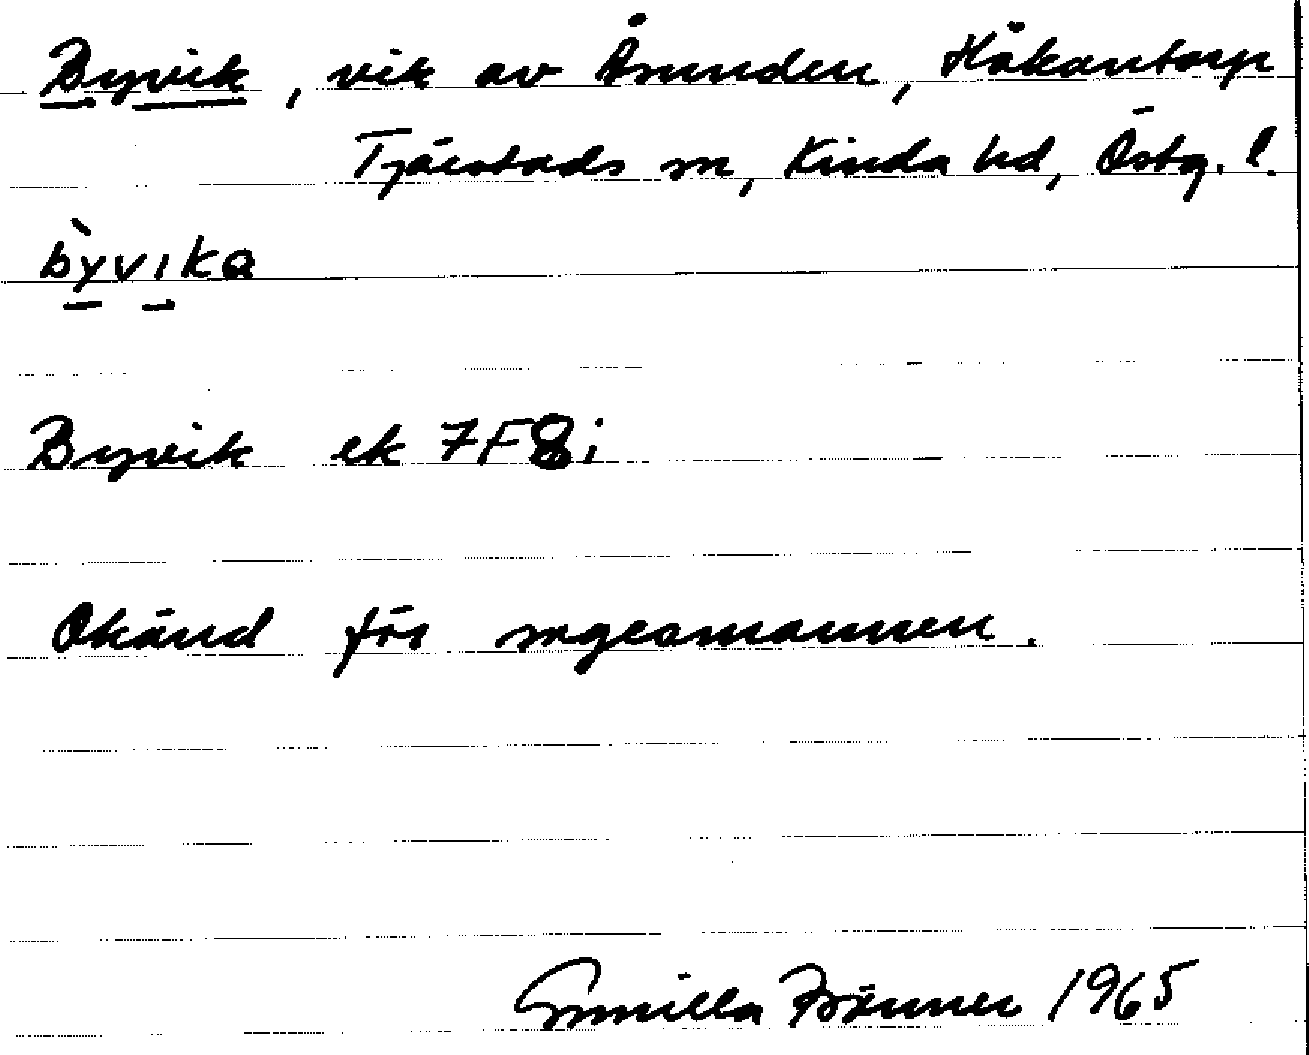 Byvik, vik av Åsunden, Håkantorp
Tjärstads sn, Kinda hd, Östg. l.
bỳvika
Byvik ek 7F8i
Okänd för sagesmannen.
Gunilla Fränner 1965